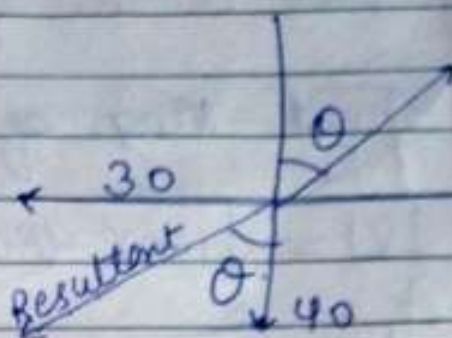 θ
30
Resultant
θ
40